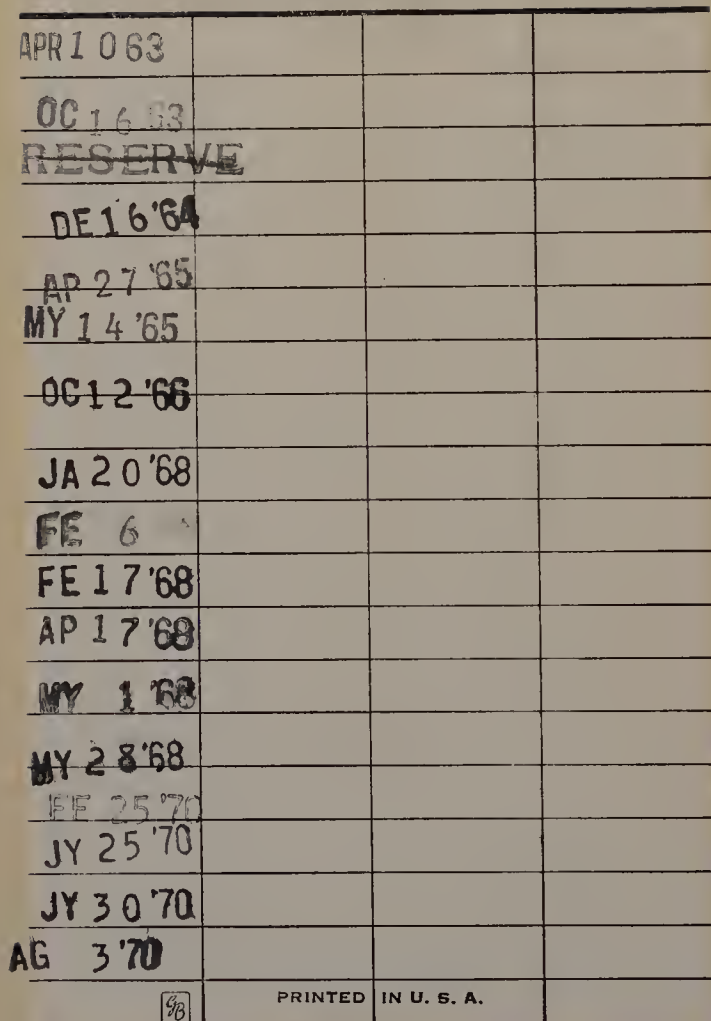 APR 10 63
OC 16 63
RESERVE
DE 16 '64
AP 27 '65
MY 14 '65
OC 12 '66
JA 20 '68
FE 6
FE 17 '68
AP 17 '68
MY 1 '68
MY 28 '68
FE 25 '70
JY 25 '70
JY 30 '70
AG 3 '70
GB PRINTED IN U. S. A.